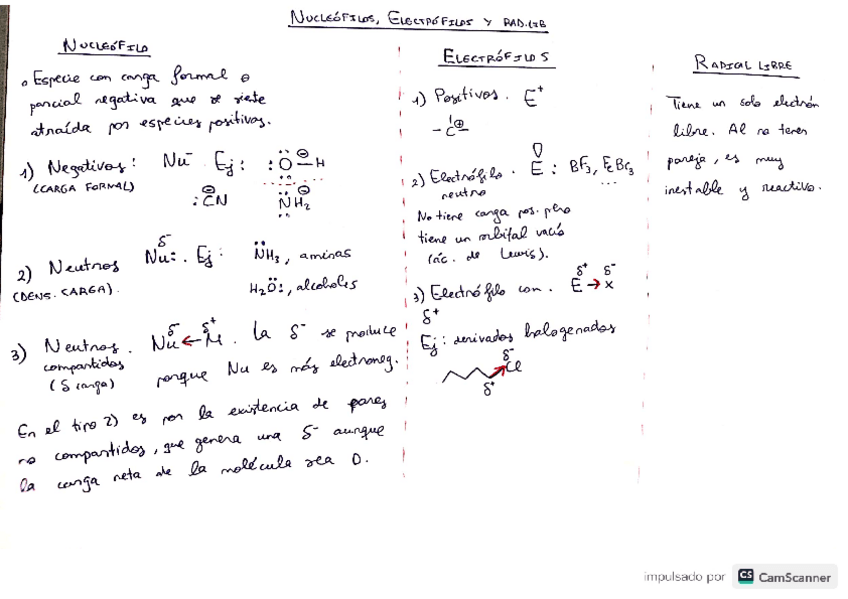 NUCLEÓFILOS, ELECTRÓFILOS Y RAD.LIB
NUCLEÓFILO
• Especie con carga formal o
parcial negativa que se siete
atraída por especies positivas.
1) Negativos: Nu⁻ Ej: :O⊖–H
(CARGA FORMAL)
:CN⊖ NH₂⊖
2) Neutros Nu: δ⁻. Ej: NH₃, aminas
(DENS. CARGA). H₂O:, alcoholes
3) Neutros. Nu δ⁻ ← M δ⁺. La δ⁻ se produce
compartidos porque Nu es más electroneg.
(δ carga)
En el tipo 2) es por la existencia de pares
no compartidos, que genera una δ⁻ aunque
la carga neta de la molécula sea 0.
ELECTRÓFILOS
1) Positivos. E⁺
–C⊕–
2) Electrófilo. E : BF₃, FeBr₃
neutro ...
No tiene carga pos. pero
tiene un orbital vacío
(ác. de Lewis).
3) Electrófilo con. E δ⁺ → X δ⁻
δ⁺
Ej: derivados halogenados
δ⁻ Cl
δ⁺
RADICAL LIBRE
Tiene un solo electrón
libre. Al no tener
pareja, es muy
inestable y reactivo.
impulsado por CS CamScanner